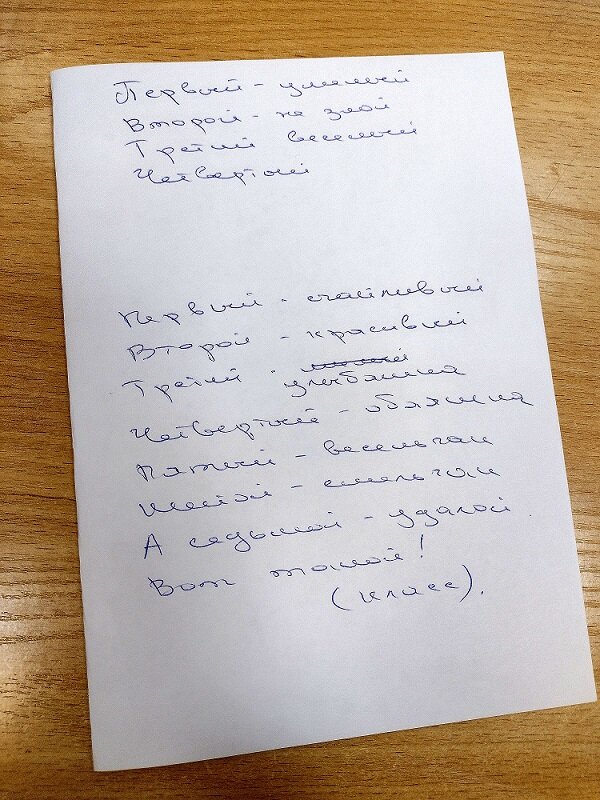 Первый - умелый
Второй - не злой
Третий веселый
Четвертый
Первый - счастливый
Второй - красивый
Третий -
улыбашка
Четвертый - обаяшка
Пятый - весельчак
Шестой - смельчак
А седьмой - удалой.
Вот такой!
(класс).